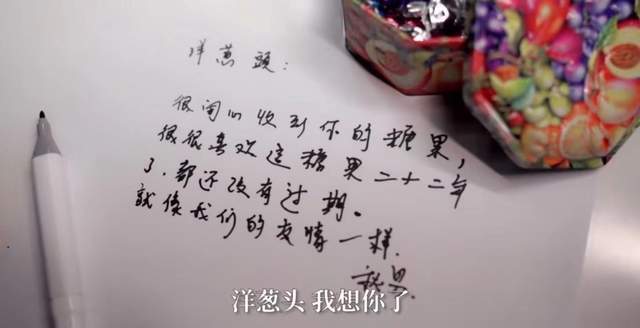 洋葱頭：
很開心收到你的糖果，
很很喜欢這糖果二十二年
了.都还没有过期。
就像我们的友情一样.
洋葱头 我想你了